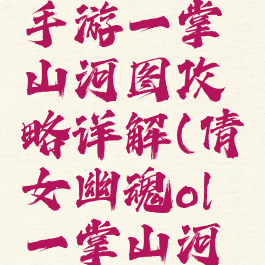 手游一掌
山河图攻
略详解(倩
女幽魂ol
一掌山河